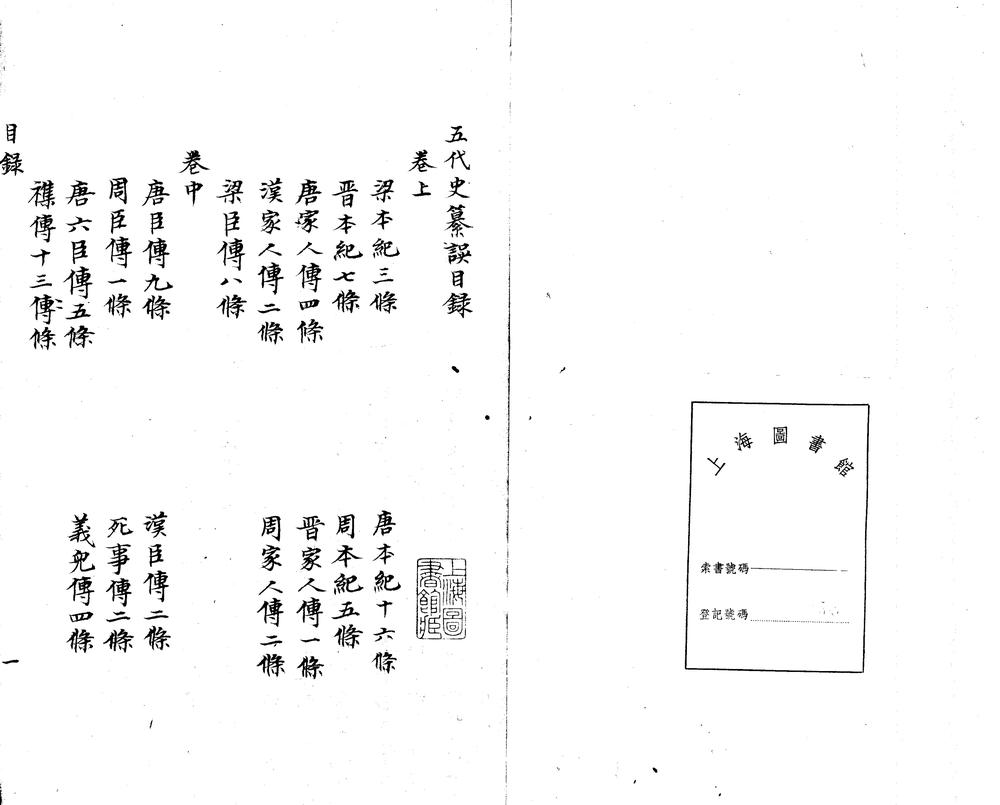 上海圖書館
索書號碼
登記號碼
五代史纂誤目録
卷上
梁本紀三條 唐本紀十六條
晋本紀七條 周本紀五條
唐家人傳四條 晋家人傳一條
漢家人傳二條 周家人傳二條
梁臣傳八條
卷中
唐臣傳九條 漢臣傳二條
周臣傳一條 死事傳二條
唐六臣傳五條 義兒傳四條
襍傳十三傳條
目録 一
上海圖書館藏